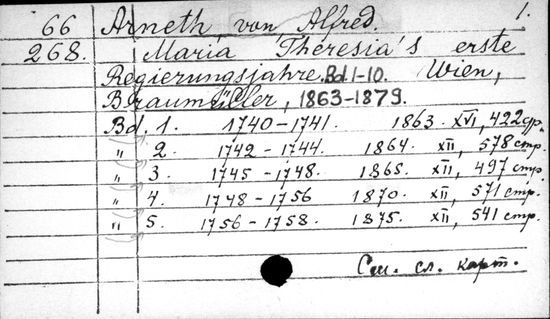 66 Arneth von Alfred. 1.
268. Maria Theresia's erste
Regierungsjahre. Bd. 1-10. Wien,
Braumüller, 1863-1879.
Bd. 1. 1740-1741. 1863. XVI, 422 стр.
„ 2. 1742-1744. 1864. XII, 578 стр.
„ 3. 1745-1748. 1865. XII, 497 стр.
„ 4. 1748-1756 1870. XII, 571 стр.
„ 5. 1756-1758. 1875. XII, 541 стр.
См. сл. карт.